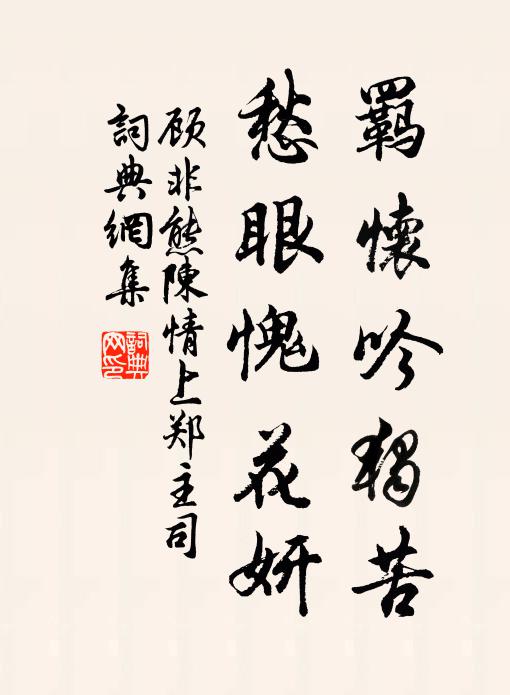 羈懷吟獨苦
愁眼愧花妍
顾非熊陳情上郑主司
詞典網集
詞典网印